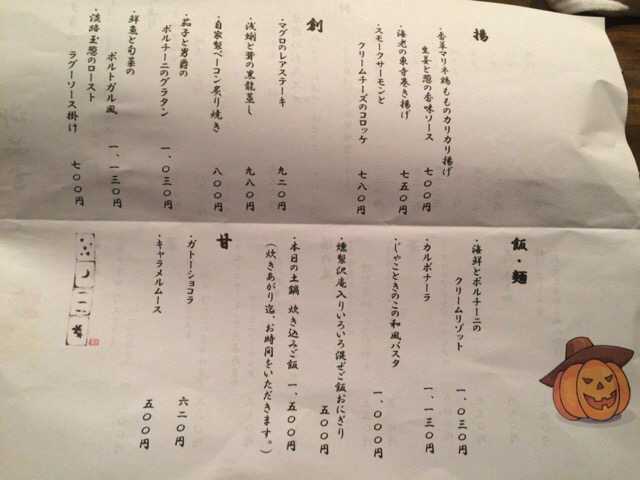 揚
・香草マリネ鶏もものカリカリ揚げ
生姜と葱の香味ソース
七〇〇円
・海老の東寺巻き揚げ
七五〇円
・スモークサーモンと
クリームチーズのコロッケ
七八〇円
創
・マグロのレアステーキ
九二〇円
・浅蜊と茸の黒龍蒸し
九八〇円
・自家製ベーコン炙り焼き
八〇〇円
・茄子と男爵の
ポルチーニのグラタン
一、〇三〇円
・鮮魚と旬菜の
ポルトガル風
一、一三〇円
・淡路玉葱のロースト
ラグーソース掛け
七〇〇円
飯・麺
・海鮮とポルチーニの
クリームリゾット
一、〇三〇円
・カルボナーラ
一、一三〇円
・じゃこときのこの和風パスタ
一、〇〇〇円
・燻製沢庵入りいろいろ混ぜご飯おにぎり
五〇〇円
・本日の土鍋 炊き込みご飯 一、五〇〇円
(炊きあがり迄、お時間をいただきます。)
甘
・ガトーショコラ
六二〇円
・キャラメルムース
五〇〇円